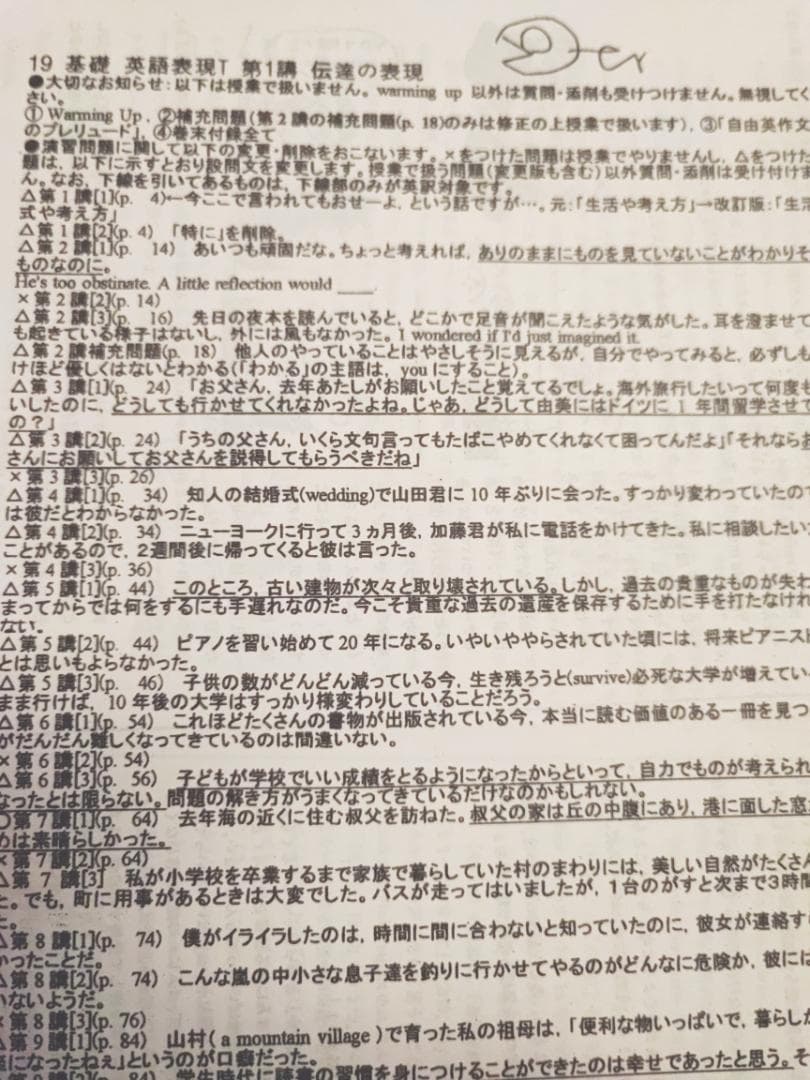 19 基礎 英語表現T 第1講 伝達の表現
●大切なお知らせ:以下は授業で扱いません。warming up 以外は質問・添削も受けつけません。無視してく
さい。
①Warming Up,②補充問題(第2講の補充問題(p. 18)のみは修正の上授業で扱います),③「自由英作文
のプレリュード」,④巻末付録全て
●演習問題に関して以下の変更・削除をおこないます。×をつけた問題は授業でやりませんし,△をつけた
題は,以下に示すとおり設問文を変更します。授業で扱う問題(変更版も含む)以外質問・添削は受け付けま
ん。なお,下線を引いてあるものは,下線部のみが英訳対象です。
△第1講[1](p. 4)←今ここで言われてもおせーよ,という話ですが…。元:「生活や考え方」→改訂版:「生活
式や考え方」
△第1講[2](p. 4) 「特に」を削除。
△第2講[1](p. 14) あいつも頑固だな。ちょっと考えれば,ありのままにものを見ていないことがわかりそ
ものなのに。
He's too obstinate. A little reflection would ____.
×第2講[2](p. 14)
△第2講[3](p. 16) 先日の夜本を読んでいると,どこかで足音が聞こえたような気がした。耳を澄ませて
も起きている様子はないし,外には風もなかった。I wondered if I'd just imagined it.
△第2講補充問題(p. 18) 他人のやっていることはやさしそうに見えるが,自分でやってみると,必ずしも
けほど優しくはないとわかる(「わかる」の主語は,you にすること)。
△第3講[1](p. 24) 「お父さん,去年あたしがお願いしたこと覚えてるでしょ。海外旅行したいって何度も
いしたのに,どうしても行かせてくれなかったよね。じゃあ,どうして由美にはドイツに1年間留学させて
の?」
△第3講[2](p. 24) 「うちの父さん,いくら文句言ってもたばこやめてくれなくて困ってんだよ」「それならお
さんにお願いしてお父さんを説得してもらうべきだね」
×第3講[3](p. 26)
△第4講[1](p. 34) 知人の結婚式(wedding)で山田君に10年ぶりに会った。すっかり変わっていたので
は彼だとわからなかった。
△第4講[2](p. 34) ニューヨークに行って3ヵ月後,加藤君が私に電話をかけてきた。私に相談したい
ことがあるので,2週間後に帰ってくると彼は言った。
×第4講[3](p. 36)
△第5講[1](p. 44) このところ,古い建物が次々と取り壊されている。しかし,過去の貴重なものが失わ
まってからでは何をするにも手遅れなのだ。今こそ貴重な過去の遺産を保存するために手を打たなけれ
ない。
△第5講[2](p. 44) ピアノを習い始めて20年になる。いやいややらされていた頃には,将来ピアニスト
とは思いもよらなかった。
△第5講[3](p. 46) 子供の数がどんどん減っている今,生き残ろうと(survive)必死な大学が増えてい
まま行けば,10年後の大学はすっかり様変わりしていることだろう。
△第6講[1](p. 54) これほどたくさんの書物が出版されている今,本当に読む価値のある一冊を見つ
がだんだん難しくなってきているのは間違いない。
×第6講[2](p. 54)
△第6講[3](p. 56) 子どもが学校でいい成績をとるようになったからといって,自力でものが考えられ
なったとは限らない。問題の解き方がうまくなってきているだけなのかもしれない。
○第7講[1](p. 64) 去年海の近くに住む叔父を訪ねた。叔父の家は丘の中腹にあり,港に面した窓
めは素晴らしかった。
×第7講[2](p. 64)
△第7講[3] 私が小学校を卒業するまで家族で暮らしていた村のまわりには,美しい自然がたくさん
た。でも,町に用事があるときは大変でした。バスが走ってはいましたが,1台のがすと次まで3時間
た。
△第8講[1](p. 74) 僕がイライラしたのは,時間に間に合わないと知っていたのに,彼女が連絡す
かったことだ。
△第8講[2](p. 74) こんな嵐の中小さな息子達を釣りに行かせてやるのがどんなに危険か,彼には
いないようだ。
×第8講[3](p. 76)
△第9講[1](p. 84) 山村(a mountain village)で育った私の祖母は,「便利な物いっぱいで,暮らしが
になったねぇ」というのが口癖だった。
第9講[2](p. 84) 学生時代に読書の習慣を身につけることができたのは幸せであったと思う。そ